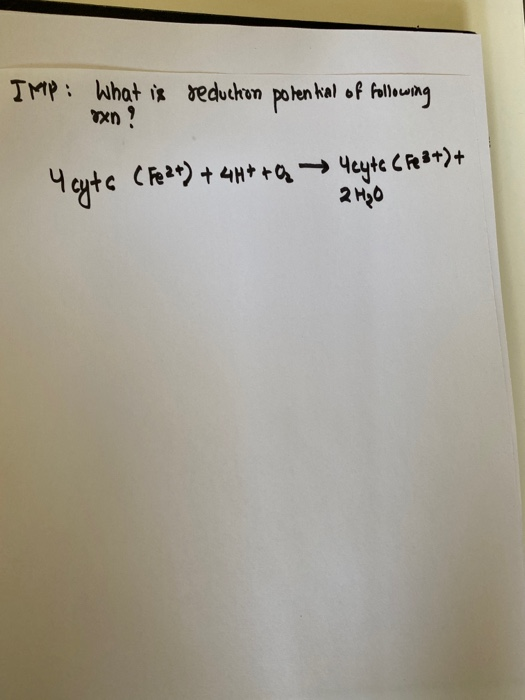 IMP: What is reduction potential of following
rxn?
4 cytc (Fe2+) + 4H+ + O2 → 4cytc (Fe3+) +
2 H2O